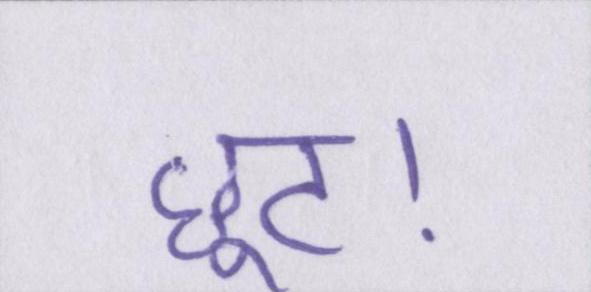 छूट!